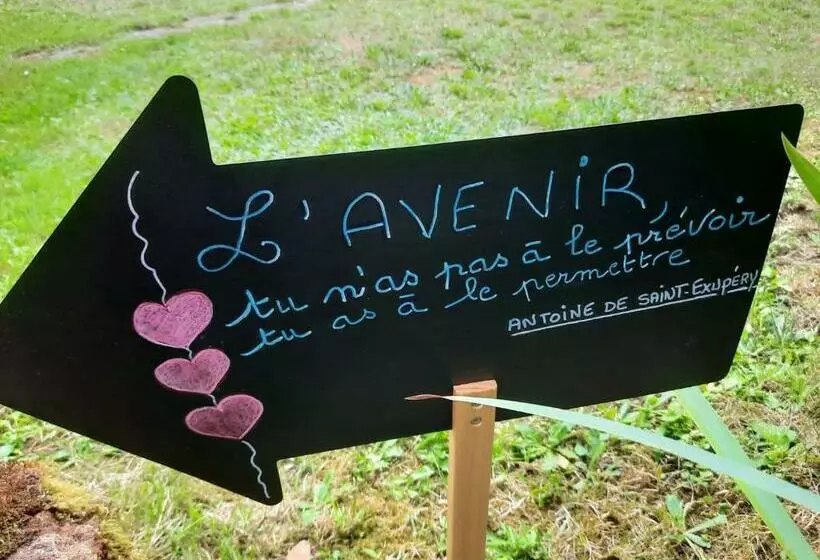 L'AVENIR,
tu n'as pas à le prévoir
tu as à le permettre
ANTOINE DE SAINT-EXUPÉRY